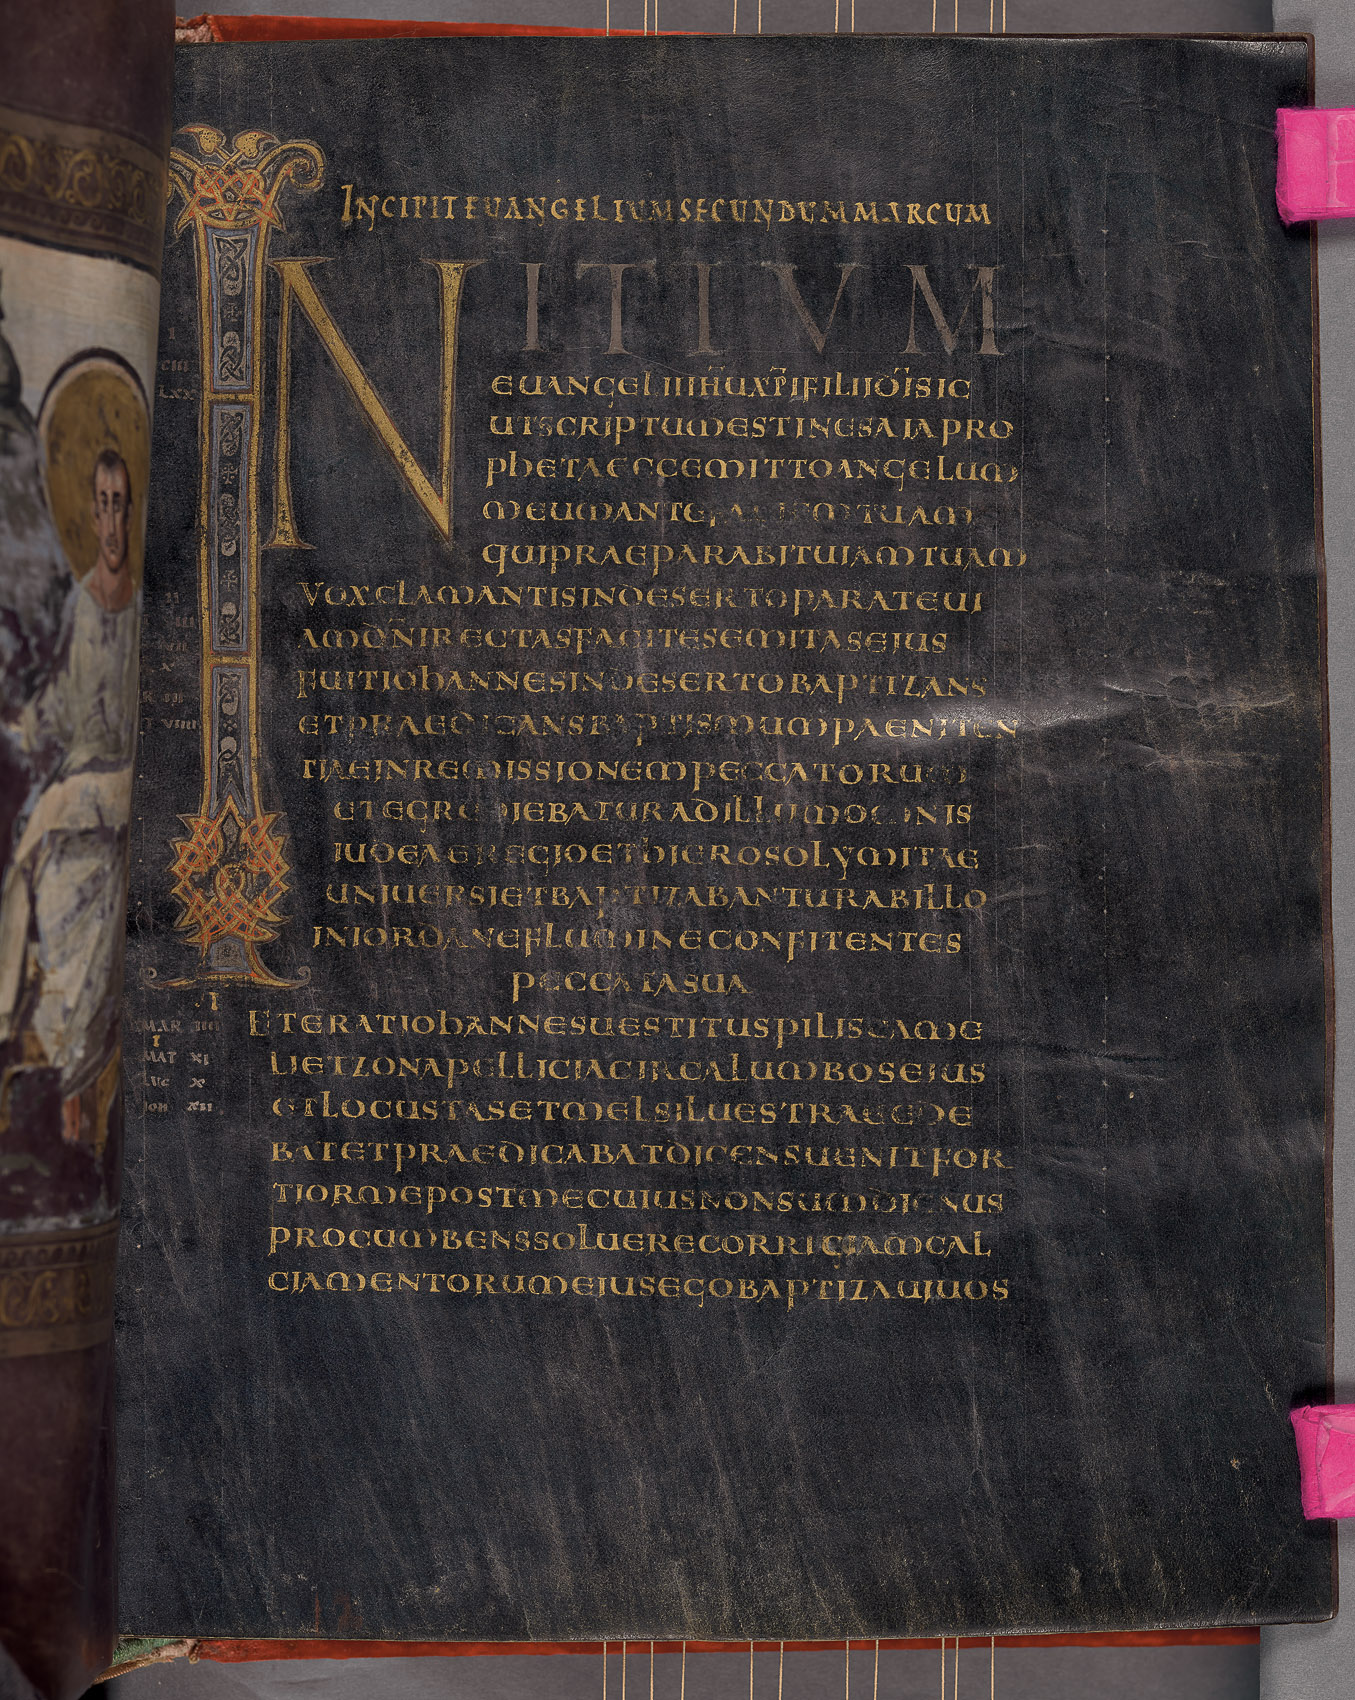 INCIPIT EUANGELIUM SECUNDUM MARCUM
INITIVM
EUANGELII IHU XPI FILII DI SIC
UT SCRIPTUM EST IN ESAIA PRO
PHETA ECCE MITTO ANGELUM
MEUM ANTE FACIEM TUAM
QUI PRAEPARABIT UIAM TUAM
VOX CLAMANTIS IN DESERTO PARATE UI
AM DNI RECTAS FACITE SEMITAS EIUS
FUIT IOHANNES IN DESERTO BAPTIZANS
ET PRAEDICANS BAPTISMUM PAENITEN
TIAE IN REMISSIONEM PECCATORUM
ET EGREDIEBATUR AD ILLUM OMNIS
IUDEAE REGIO ET HIEROSOLYMITAE
UNIUERSI ET BAPTIZABANTUR AB ILLO
IN IORDANE FLUMINE CONFITENTES
PECCATA SUA
ET ERAT IOHANNES UESTITUS PILIS CAME
LI ET ZONA PELLICIA CIRCA LUMBOS EIUS
ET LOCUSTAS ET MEL SILUESTRAE EDE
BAT ET PRAEDICABAT DICENS UENIT FOR
TIOR ME POST ME CUIUS NON SUM DIGNUS
PROCUMBENS SOLUERE CORRIGIAM CAL
CIAMENTORUM EIUS EGO BAPTIZAUI UOS
MAR IIII
I
MAT XI
LUC X
IOH XII